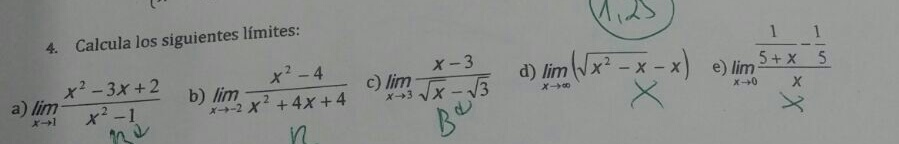 1,25
4. Calcula los siguientes límites:
a) lim x→1 (x² – 3x + 2)/(x² – 1) b) lim x→-2 (x² – 4)/(x² + 4x + 4) c) lim x→3 (x – 3)/(√x – √3) d) lim x→∞ (√(x² – x) – x) e) lim x→0 (1/(5 + x) – 1/5)/x
B X X